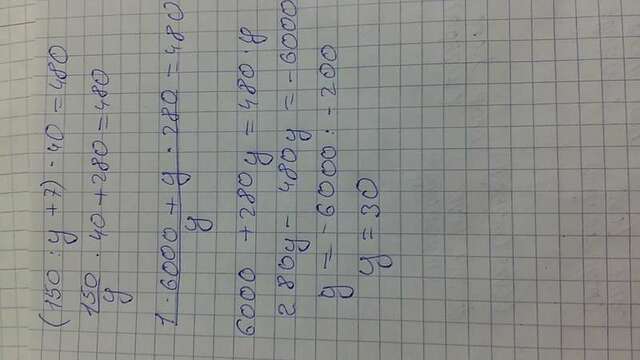 (150 : y + 7) · 40 = 480
150/y · 40 + 280 = 480
1 · 6000 + y · 280 / y = 480
6000 + 280y = 480 · y
280y - 480y = -6000
y = -6000 : -200
y = 30